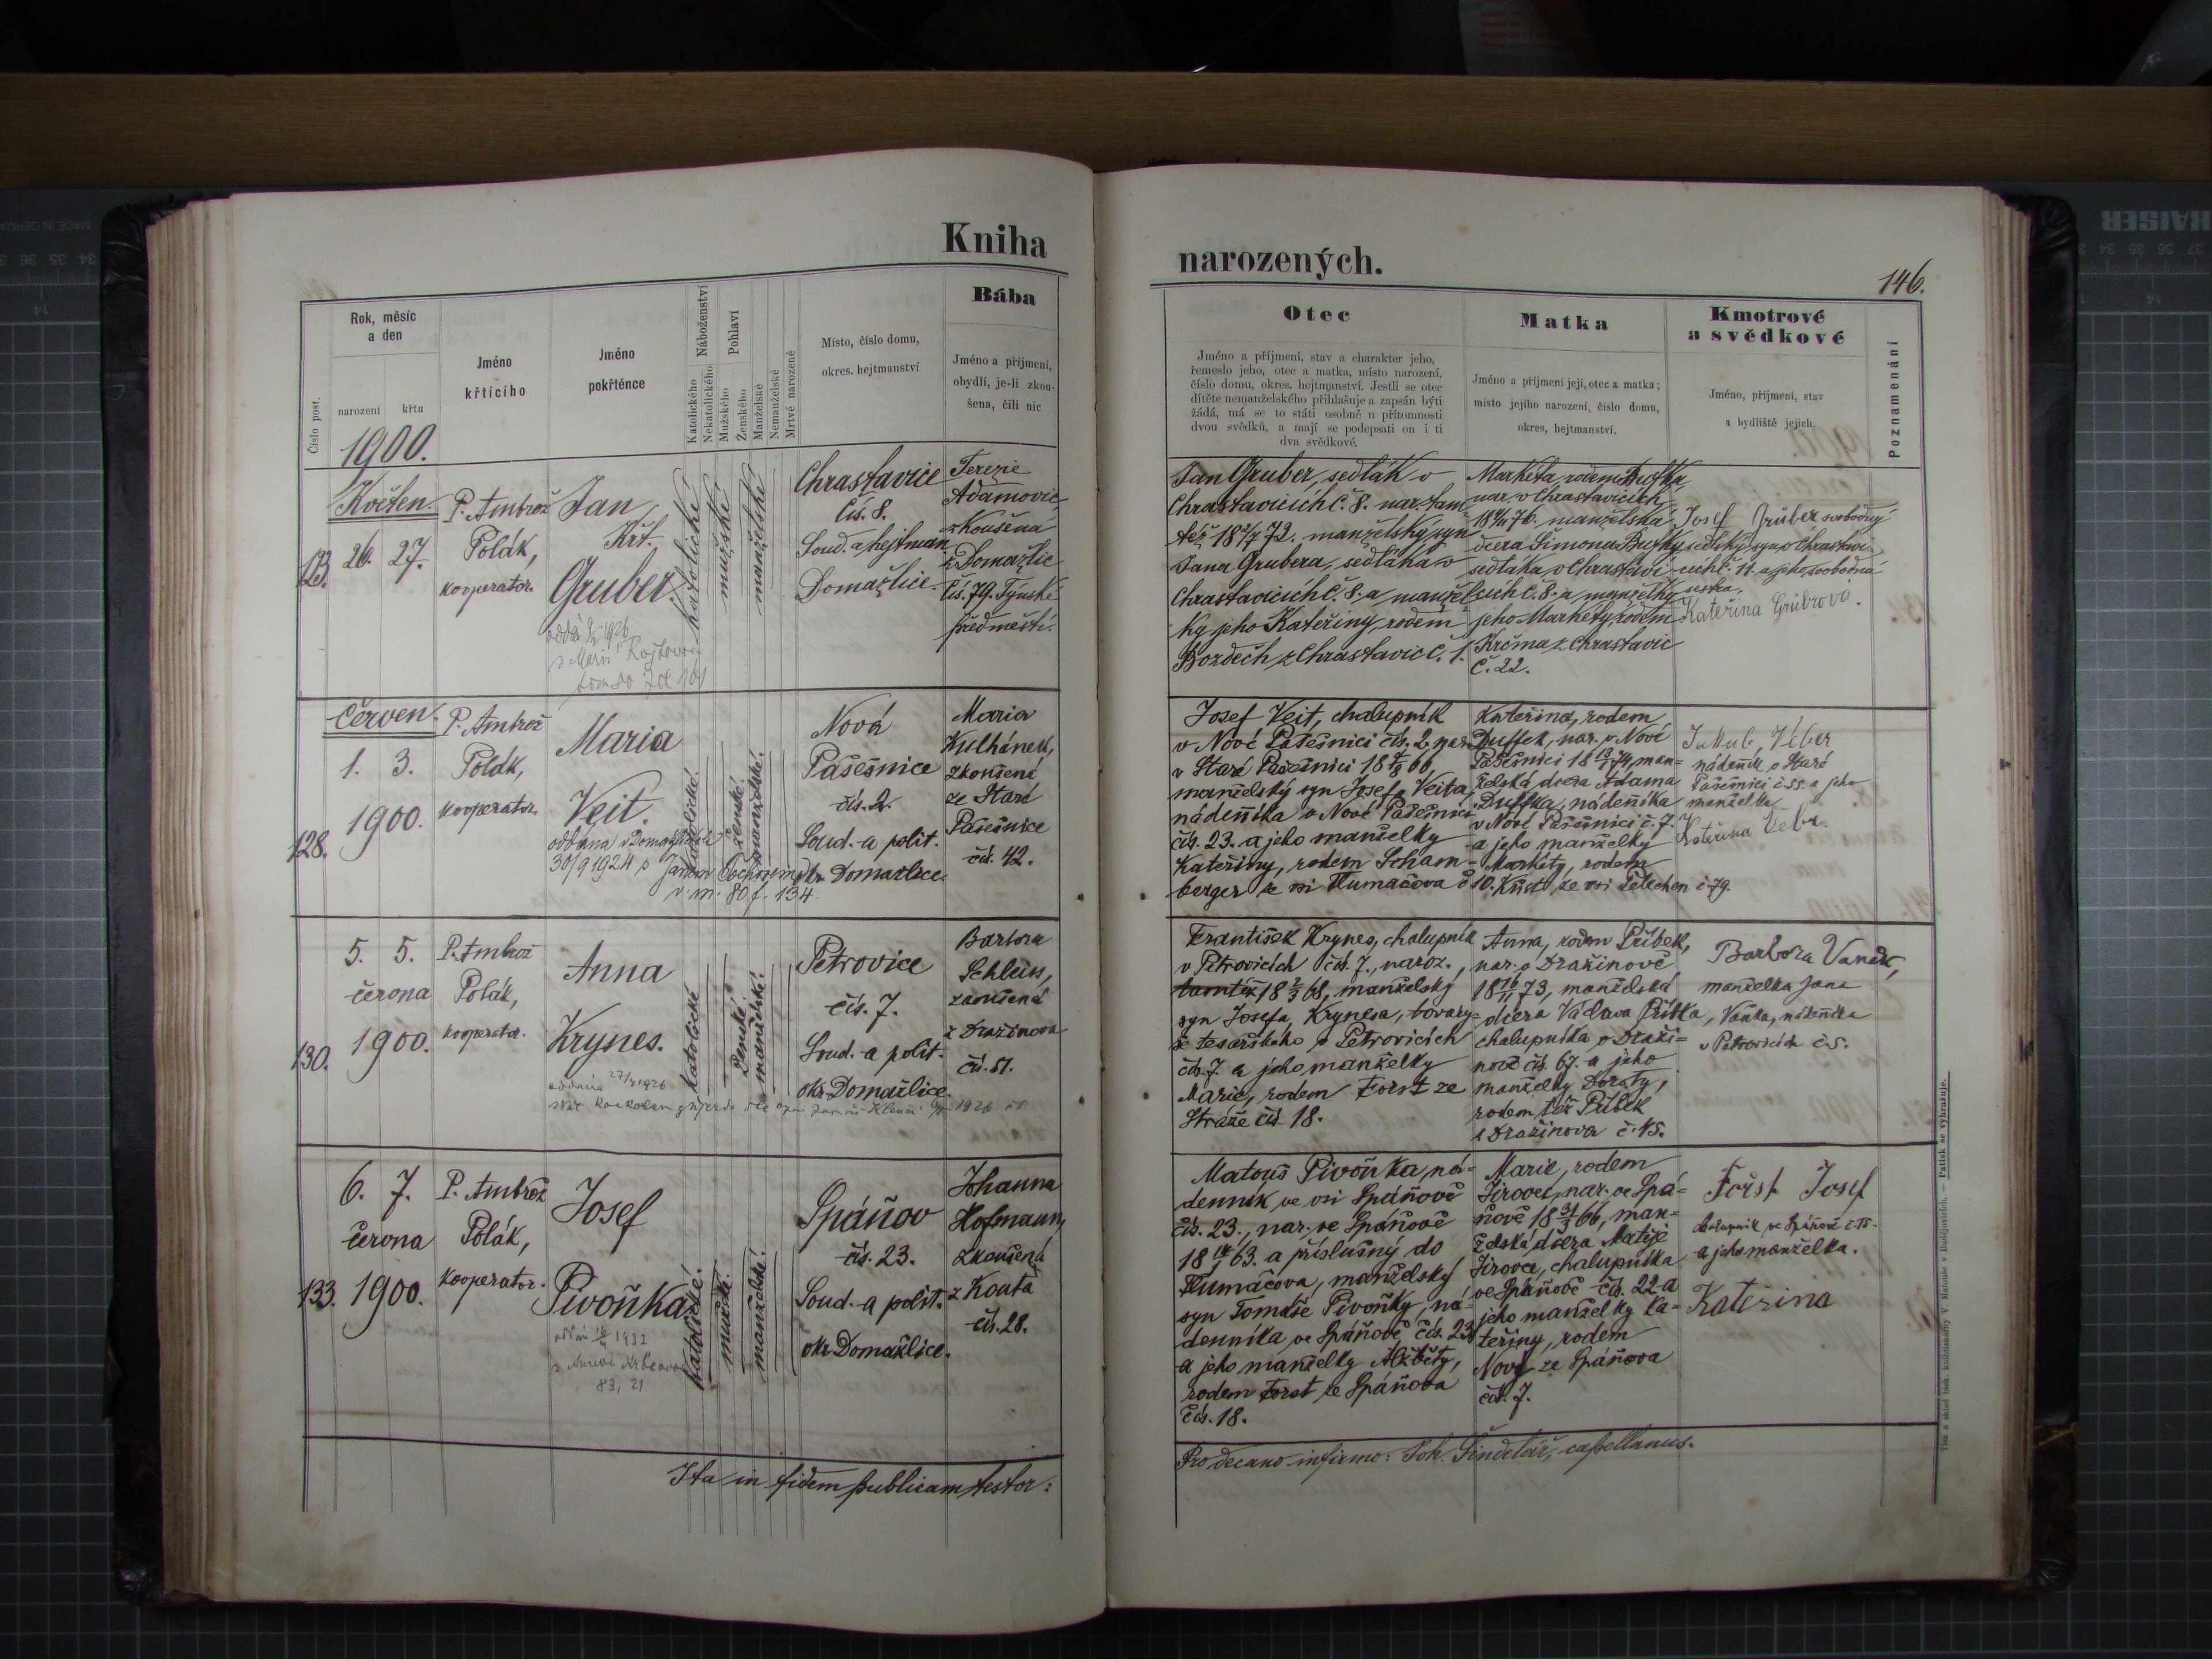 Kniha
Číslo post.
Rok, měsíc
a den
narození
křtu
Jméno
křtícího
Jméno
pokřtěnce
Náboženství
Katolického
Nekatolického
Pohlaví
Mužského
Ženského
Manželské
Nemanželské
Mrtvě narozené
Místo, číslo domu,
okres. hejtmanství
Bába
Jméno a příjmení,
obydlí, je-li zkou-
šena, čili nic
1900.
Květen.
26. 27.
P. Ambrož
Polák,
kooperator.
Jan
Křt.
Gruber.
katolické
mužské
manželské
Chrastavice
čís. 8.
Soud. a hejtman
Domažlice.
Terezie
Adamovic,
zkoušena
z Domažlic
čís. 79. Týnské
předměstí.
128.
Červen.
1. 3.
1900.
P. Ambrož
Polák,
kooperator.
Maria
Veit.
oddána v Domažlicích
30/9 1924 s Janem
80 f. 134
katolické
ženské
manželské.
Nová
Pasešnice
čís. 2.
Soud. a polit.
okr. Domažlice.
Maria
Kulhánek,
zkoušená
ze Staré
Pasešnice
čís. 42.
130.
5. 5.
června
1900.
P. Ambrož
Polák,
kooperator.
Anna
Krynes.
katolické
ženské
manželské.
Petrovice
čís. 7.
Soud. a polit.
okr. Domažlice.
Barbora
Schleiss,
zkoušená
z Dražinova
čís. 51.
133.
6. 7.
června
1900.
P. Ambrož
Polák,
kooperator.
Josef
Pivoňka.
1932
83, 21
katolické.
mužské.
manželské.
Spáňov
čís. 23.
Soud. a polit.
okr. Domažlice.
Johanna
Hofmann,
zkoušená
z Kouta
čís. 28.
Ita in fidem publicam testor:
narozených.
146.
Otec
Jméno a příjmení, stav a charakter jeho,
řemeslo jeho, otec a matka, místo narození,
číslo domu, okres. hejtmanství. Jestli se otec
dítěte nemanželského přihlašuje a zapsán býti
žádá, má se to státi osobně u přítomnosti
dvou svědků, a mají se podepsati on i ti
dva svědkové.
Matka
Jméno a příjmení její, otec a matka;
místo jejího narození, číslo domu,
okres, hejtmanství.
Kmotrové
a svědkové
Jméno, příjmení, stav
a bydliště jejich.
Poznamenání
Jan Gruber, sedlák v
Chrastavicích č. 8. nar. tam-
též 72. manželský syn
Jana Grubera, sedláka v
Chrastavicích č. 8. a manžel-
ky jeho Kateřiny, rodem
Bozděch z Chrastavic č. 1.
Markéta rodem Buřka
nar. v Chrastavicích
76. manželská
dcera Šimona Buřky
sedláka v Chrastavi-
cích č. 8. a manželky
jeho Markéty, rodem
Krčma z Chrastavic
č. 22.
Josef Grüber svobodný
sedlský syn v Chrastavi-
cích č. 11. a jeho svobodná
sestra.
Kateřina Grübrová.
Josef Veit, chalupník
v Nové Pasešnici čís. 2, nar.
v Staré Pasešnici 18 66,
manželský syn Josefa Veita,
nádenníka v Nové Pasešnici
čís. 23. a jeho manželky
Kateřiny, rodem Scham-
berger ze vsi Tlumačova č 10.
Kateřina, rodem
Duffek, nar. v Nové
Pasešnici 18 74, man-
želská dcera Adama
Duffka, nádenníka
v Nové Pasešnici č. 7.
a jeho manželky
Markéty, rodem
ze vsi č. 79.
Jakub, Veber
nádenník v Staré
Pasešnici č. 55. a jeho
manželka
Kateřina Vebr.
František Krynes, chalupník
v Petrovicích čís. 7., naroz.
tamtéž 18 2/3 68, manželský
syn Josefa Krynesa, tovary-
še tesařského v Petrovicích
čís. 7. a jeho manželky
Marie, rodem Forst ze
Stráže čís 18.
Anna, rodem Příbek,
nar. v Dražinově
18 16/11 73, manželská
dcera Václava Příbka,
chalupníka v Draži-
nově čís. 67. a jeho
manželky Doroty,
rodem též Příbek
z Dražinova č. 45.
Barbora Vaněk,
manželka Jana
Vaňka, nádenníka
v Petrovicích č. 5.
Matouš Pivoňka, ná-
denník ve vsi Spáňově
čís. 23., nar. ve Spáňově
18 63. a příslušný do
Tlumačova, manželský
syn Tomáše Pivoňky, ná-
denníka ve Spáňově čís. 23
a jeho manželky Alžběty,
rodem Forst ze Spáňova
čís. 18.
Marie, rodem
Jírovec, nar. ve Spá-
ňově 18 31/3 66, man-
želská dcera Matěje
Jírovce, chalupníka
ve Spáňově čís. 22 a
jeho manželky Ka-
teřiny, rodem
Nový ze Spáňova
čís. 7.
Foist Josef
chalupník ve Spáňově č. 15.
a jeho manželka.
Kateřina
Pro decano infirmo: Joh. Šindelář, capellanus.
Tisk a sklad tisk. knihtiskárny V. Matouše v Budějovicích. — Patisk se vyhražuje.
KAISER
MADE IN GERMA